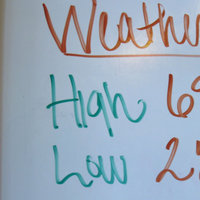 Weather
High 6
Low 2